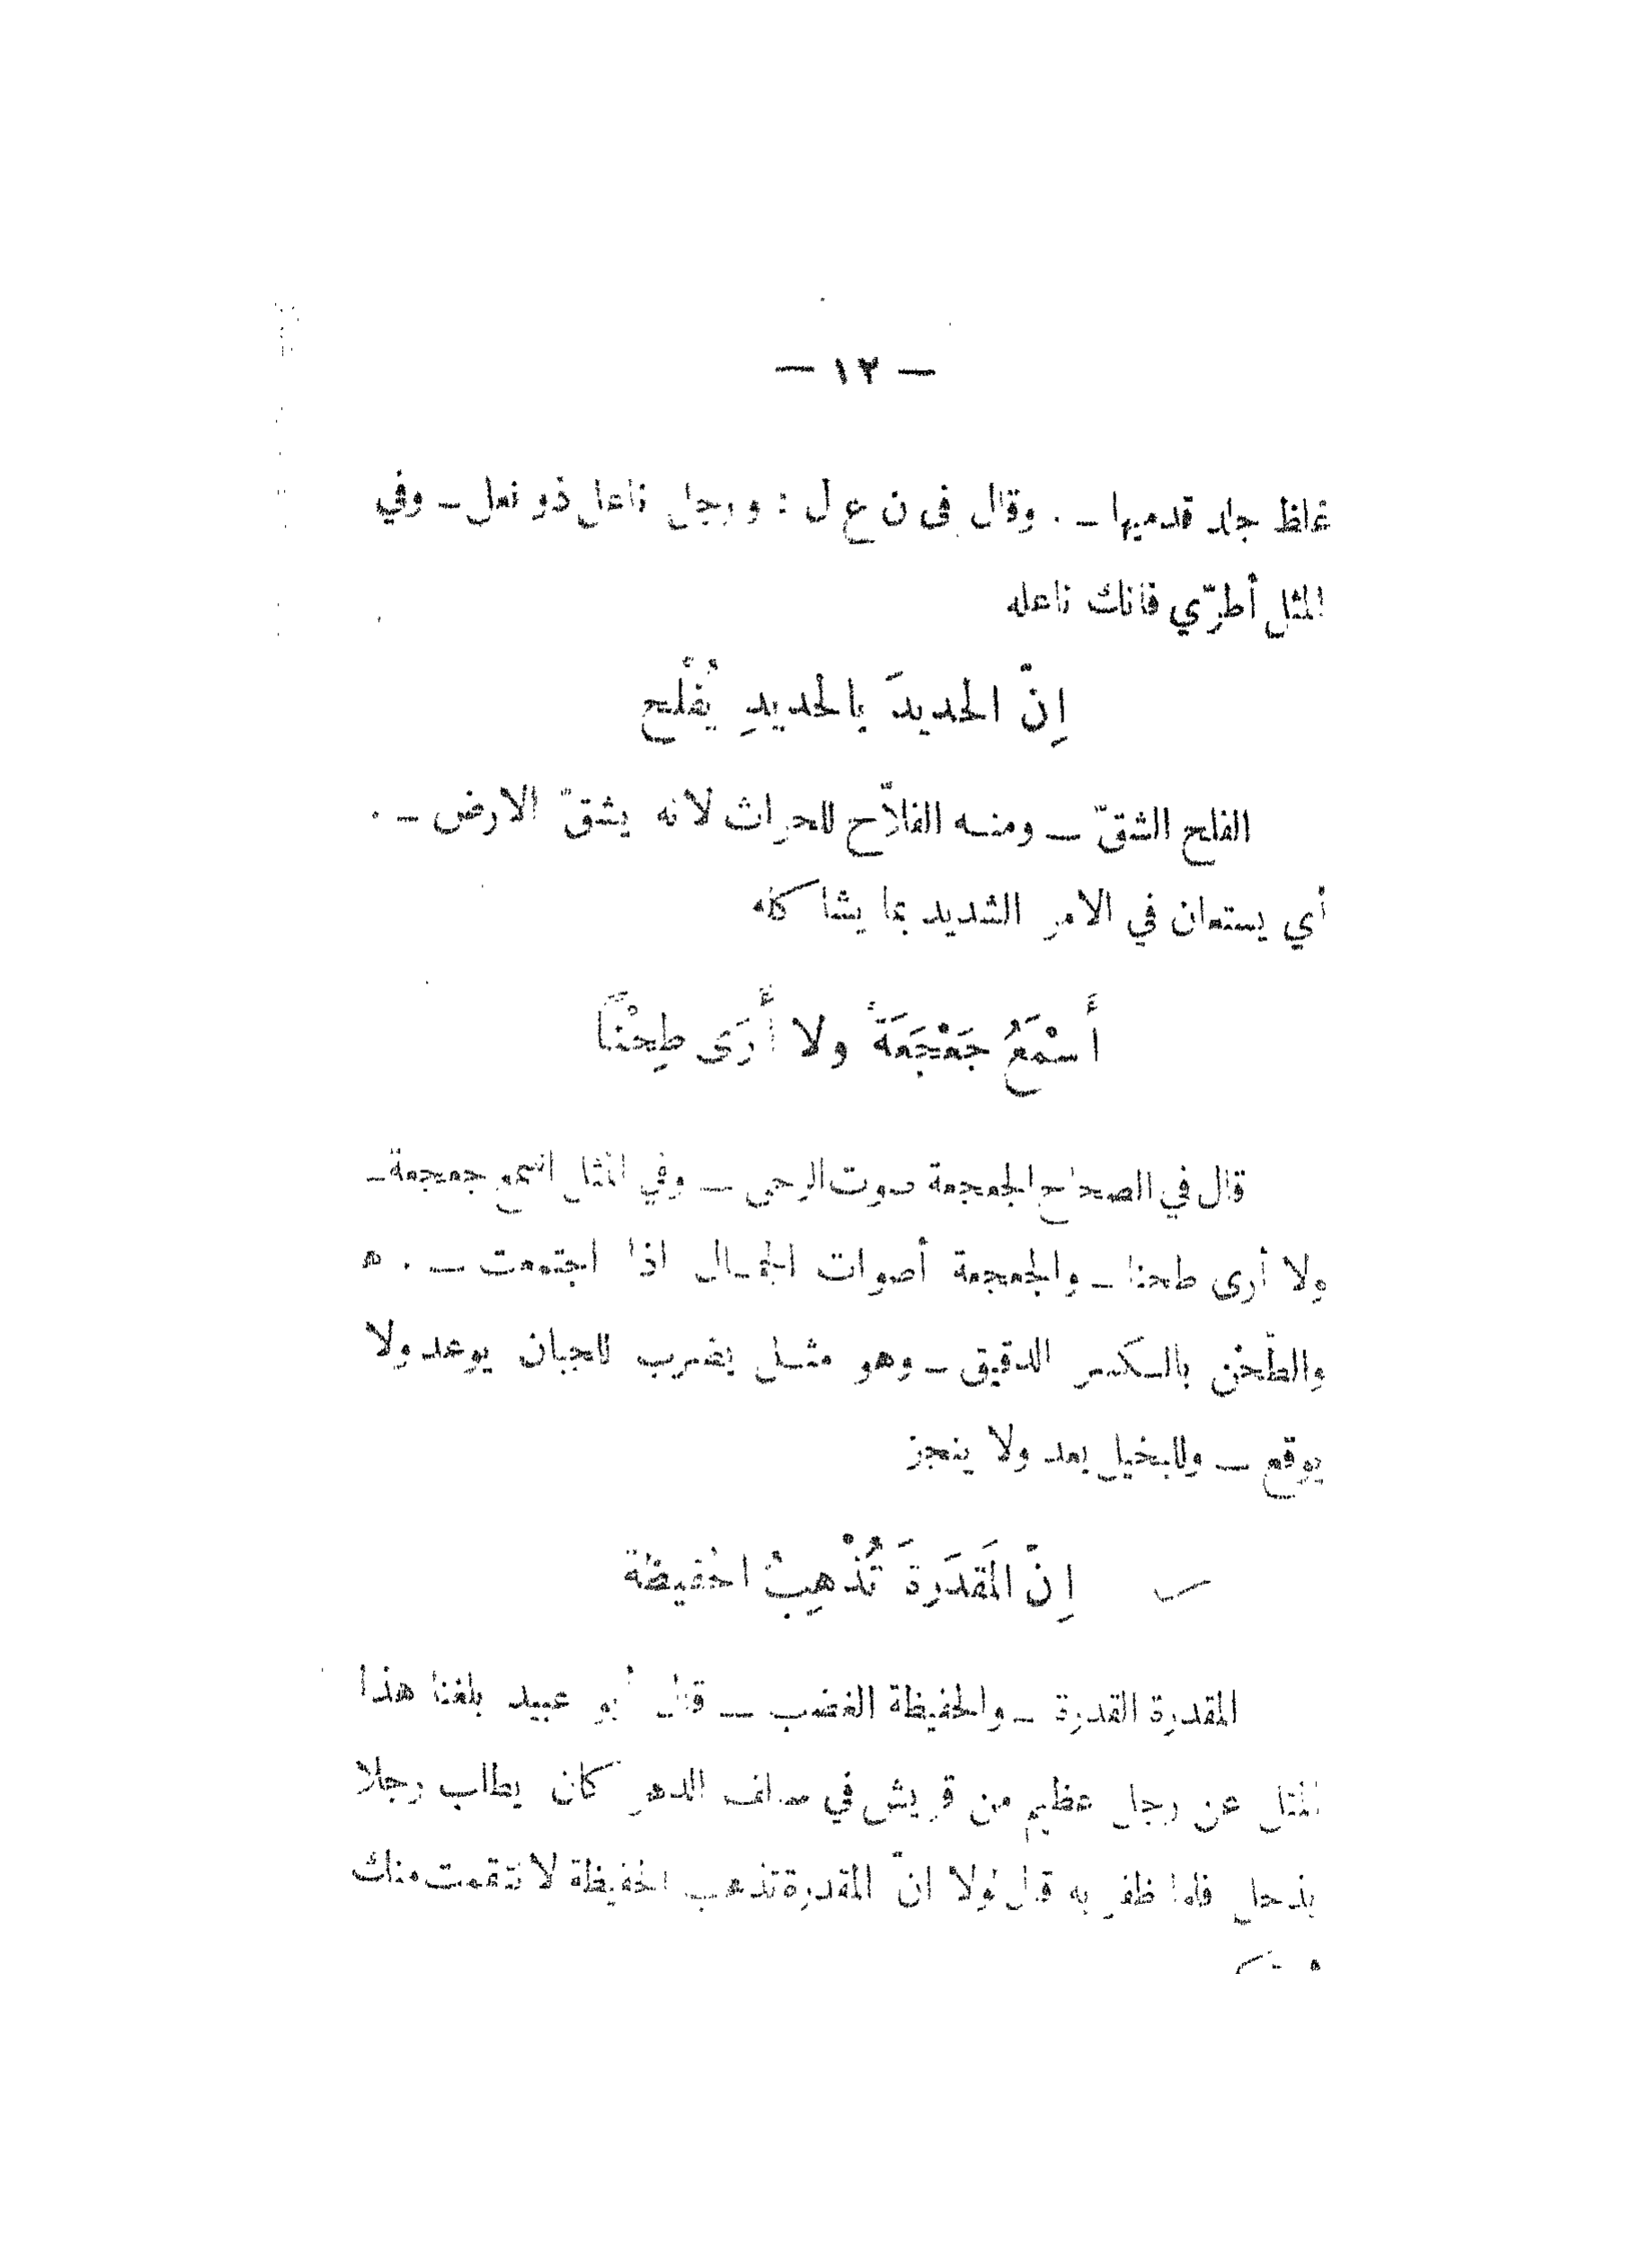 — ١٢ —
غلظ جلد قدميها ـ . وقال في ن ع ل : ورجل ناعل ذو نعل ـ وفي
المثل أطرّي فانك ناعله
اِنّ الحديدَ بالحديدِ يُفْلَح
الفلح الشقّ ـ ومنه الفلاّح للحراث لانه يشقّ الارض ـ .
أي يستعان في الامر الشديد بما يشاكله
أَسْمَعُ جَعْجَعَةً ولا أَرَى طِحْنًا
قال في الصحاح الجعجعة صوت الرحى ـ وفي المثل اسمع جعجعة ـ
ولا أرى طحنا ـ والجعجعة أصوات الجمال اذا اجتمعت ـ . ه
والطّحْن بالكسر الدقيق ـ وهو مثل يضرب للجبان يوعد ولا
يوقع ـ وللبخيل يعد ولا ينجز
اِنّ المَقدَرةَ تُذْهِبُ الحفيظة
المقدرة القدرة ـ والحفيظة الغضب ـ قال أبو عبيد بلغنا هذا
المثل عن رجل عظيم من قريش في سالف الدهر كان يطلب رجلا
بذحل فلما ظفر به قال لولا انّ المقدرة تذهب الحفيظة لانتقمت منك